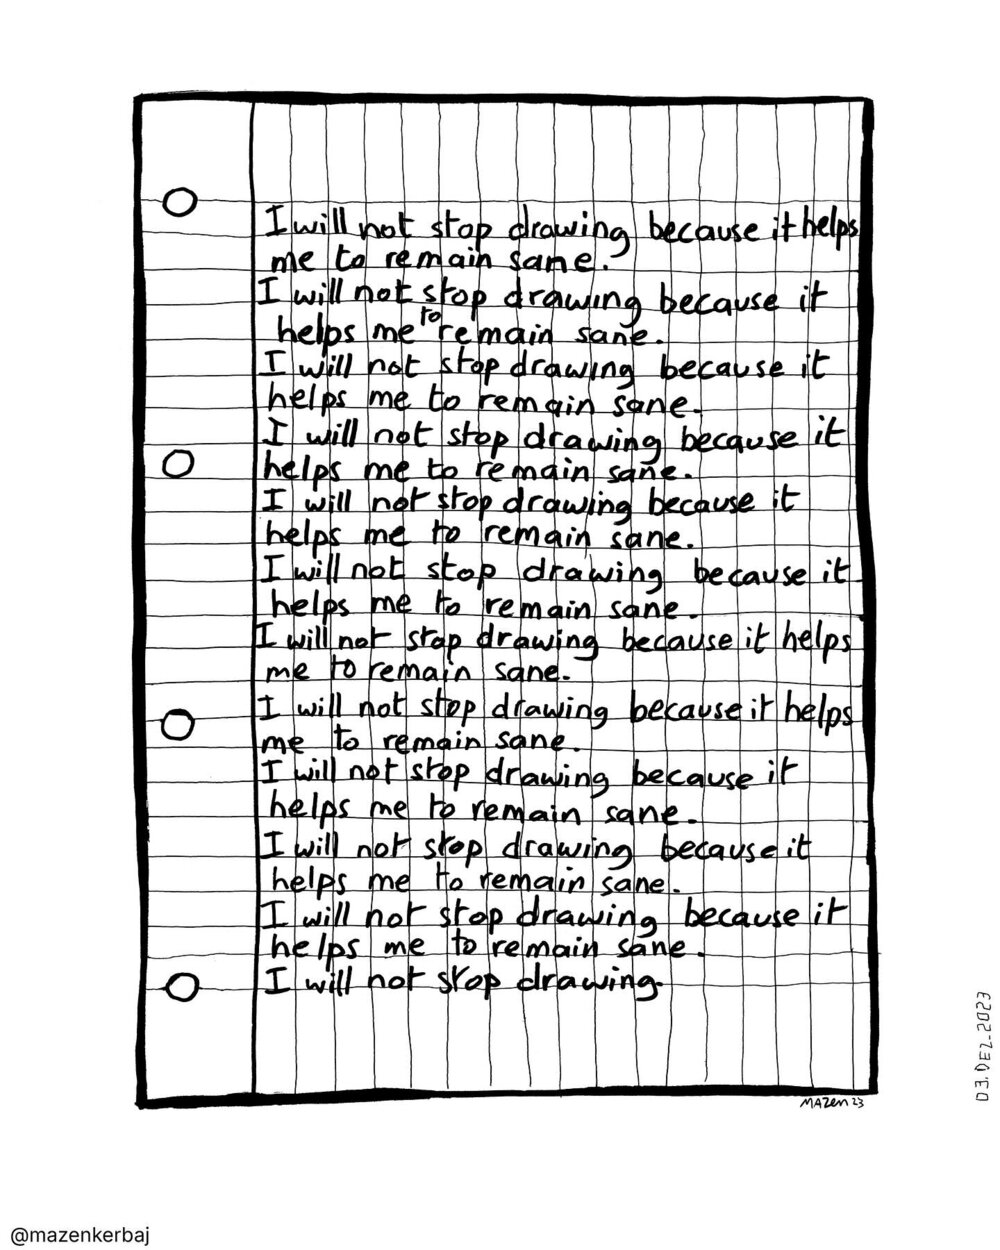 I will not stop drawing because it helps
me to remain sane.
I will not stop drawing because it
helps me to remain sane.
I will not stop drawing because it
helps me to remain sane.
I will not stop drawing because it
helps me to remain sane.
I will not stop drawing because it
helps me to remain sane.
I will not stop drawing because it
helps me to remain sane.
I will not stop drawing because it helps
me to remain sane.
I will not stop drawing because it helps
me to remain sane.
I will not stop drawing because it
helps me to remain sane.
I will not stop drawing because it
helps me to remain sane.
I will not stop drawing because it
helps me to remain sane.
I will not stop drawing.
MAZEN 23
03.DEZ.2023
@mazenkerbaj